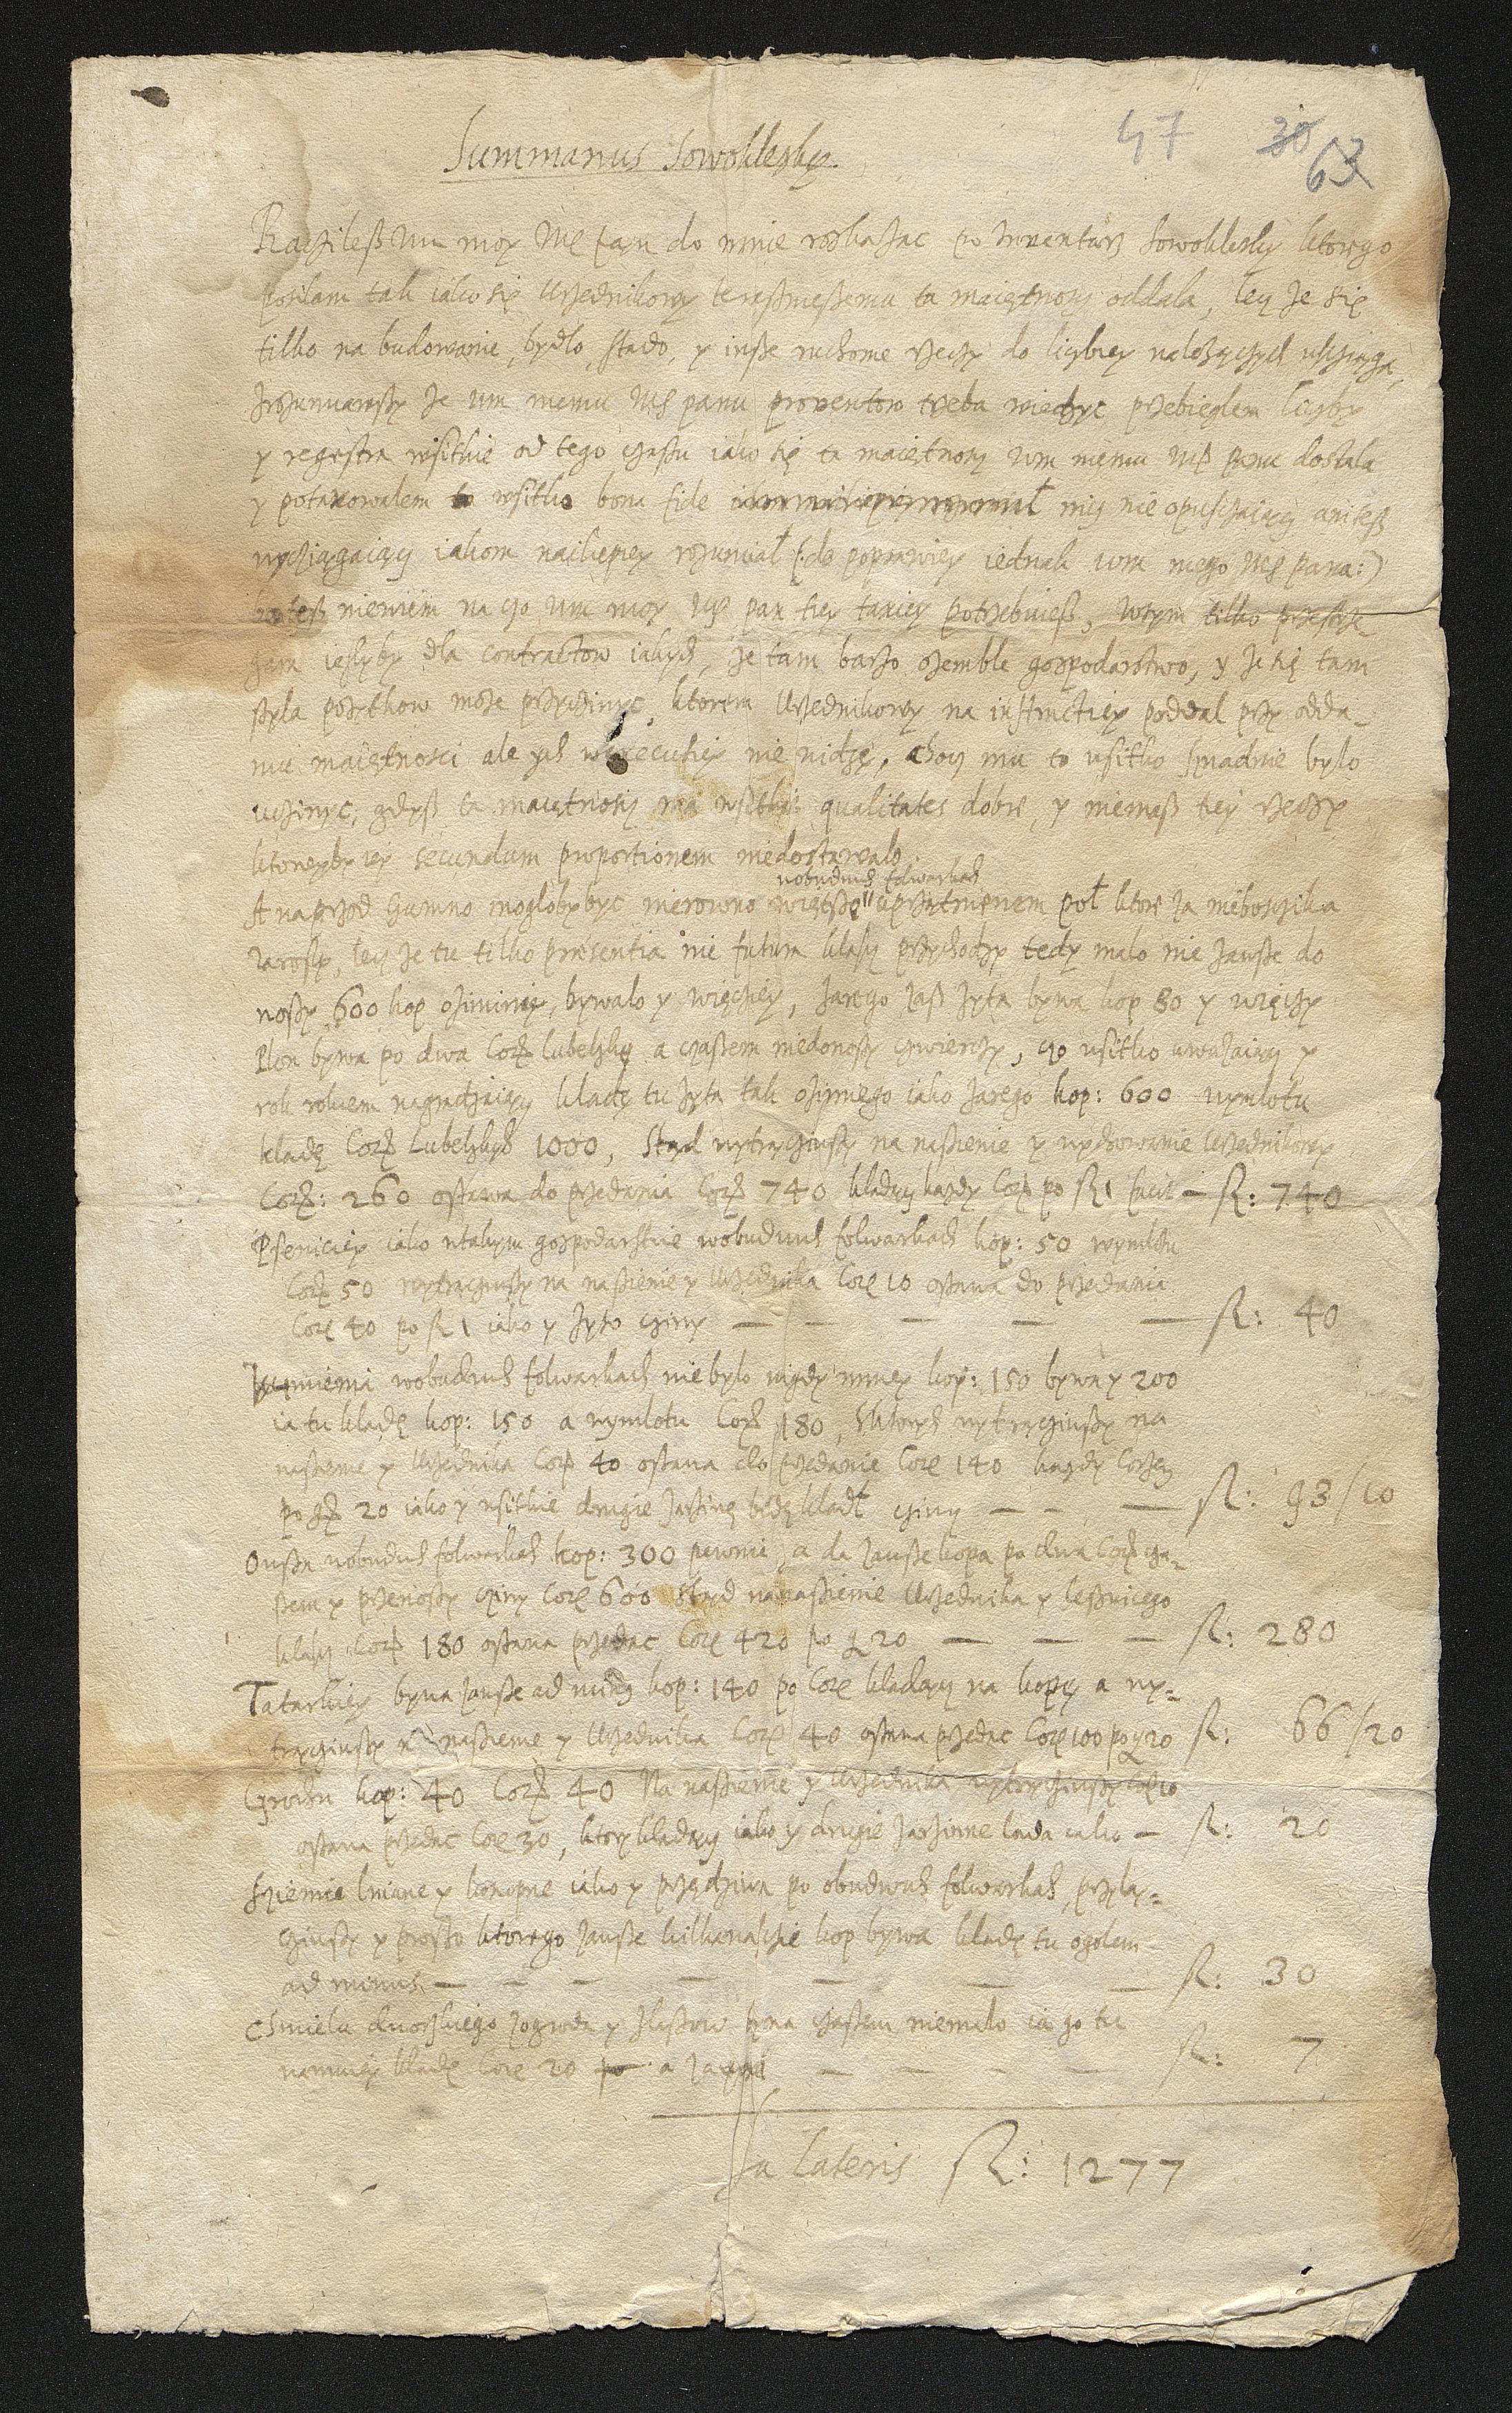 47 30 63
Summarius Sowohlesky
Racziless Wm moy Msc pan do mnie roskasac po Inwentarz Sowohlesky ktorego
posilam tak iako się Urzednikowy teraznieszemu ta maiętnosc oddala, lecz ze się
tilko na budowanie, bydlo, stado, y insse ruchome rzeczy do liczbiey nalezączych
zrozumiawszy ze wm memu Msc panu proventow trzeba wiedzyc przebieglem liczby
y regestra wsitkie od tego czassu iako się ta maiętnosc wm memu Msc panu dostala
y potaxowalem to wsitko bona fide nicz nie opusczaiącz anitesz
wycziągaiącz iakom nailiepiey rozumial (:do poprawiey iednak wm mego Msc pana:)
bo tesz niewiem na czo wm moy Msc pan tiey taxiey potrzebuiesz, wczym tilko przestrze
gam iesliby dla contractow iakych, ze tam barzo ozemble gospodarstwo, y ze się tam
syla pozytkow moze przyczinyc, ktorem Urzednikowy na instructiey poddal przy odda-
niu maiętnosci ale ych w execuhiey nie widzę, chocz mu to wsitko snadnie bylo
uczinyc, gdysz ta maiętnoscz ma wsitkie qualitates dobre y niemasz tiey rzeczy
ktoreyby iey secundum proportionem niedostawalo.
wobudwuch folwarkach
A naprzod Gumno mogloby byc nierowno większe uprzątnieniem pol ktore za nieboszczika
zarosly, lecz ze tu tilko praesentia nie futura klasc przychodzy tedy malo nie zawsse do
nossy 600 kop oziminiey, bywalo y więczey, Jarego zass zyta bywa kop 80 y więczy
Plon bywa po dwa Corz Lubelskye a czassem niedonossy czwierczy, czo wsitko uwazaiącz y
rok rokiem nagradzaiącz kladę tu zyta tak ozimego iako Jarego kop: 600 wymlotu
kladę Corz Lubelskych 1000, Stąd wytrącziwszy na nasienie y wychowanie Urzednikowy
Corz: 260 ostawa do przedania Corz 740 kladącz kazdy Corz po fl 1 facit — fl: 740
Pseniciey iako wtakym gospodarstwie wobudwuch folwarkach kop: 50 wymlotu
Corz 50 wytrącziwszy na nasienie y Urzednika Corz 10 ostawa do przedania
Corz 40 po fl 1 iako y zyto cziny — — — — — fl: 40
Jęczmienia wobudwuch folwarkach nie bylo nigdy mniey kop: 150 bywa y 200
ia tu kladę kop: 150 a wymlotu Corz 180, Sktorych wytrącziwszy na
nasienie y Urzednika Corz 40 ostawa do przedanie Corz 140 kazdy Corzecz
po gr 20 iako y wsitkie drugie Jarzine będę kladl cziny — — — fl: 93/10
Owssa wobudwuch folwarkach kop: 300 pewnie, a da zawsse kopa po dwa Corz cza-
ssem y przenossy cziny Corz 600 Stąd nanasienie Urzednika y lessnicego
klasc Corz 180 ostawa przedac Corz 420 po gr 20 — — — fl: 280
Tatarkiey bywa zawsse ad minus kop: 140 po Corz kladącz na kopę a wy-
trącziwszy na nasienie y Urzednika Corz 40 ostawa przedac Corz 100 po gr 20 fl: 66/20
Grochu kop: 40 Corz 40 Na nasienie y Urzednika wytrącziwszy Corz 10
ostawa przedac Corz 30, ktory kladącz iako y drugie Jarzinne — fl: 20
Sziemie lniane y konopne iako y przędziwa po obudwuch folwarkach, przylą-
cziwszy y prosso ktorego zawsse kilkanascie kop bywa kladę tu ogolem
ad minus — — — — — — fl: 30
Chmielu dworskiego zogroda y zlassow bywa czassem niemalo ia go tu
namniey kladę Corz 20 po a — — — — fl: 7
Sa Lateris fl: 1277